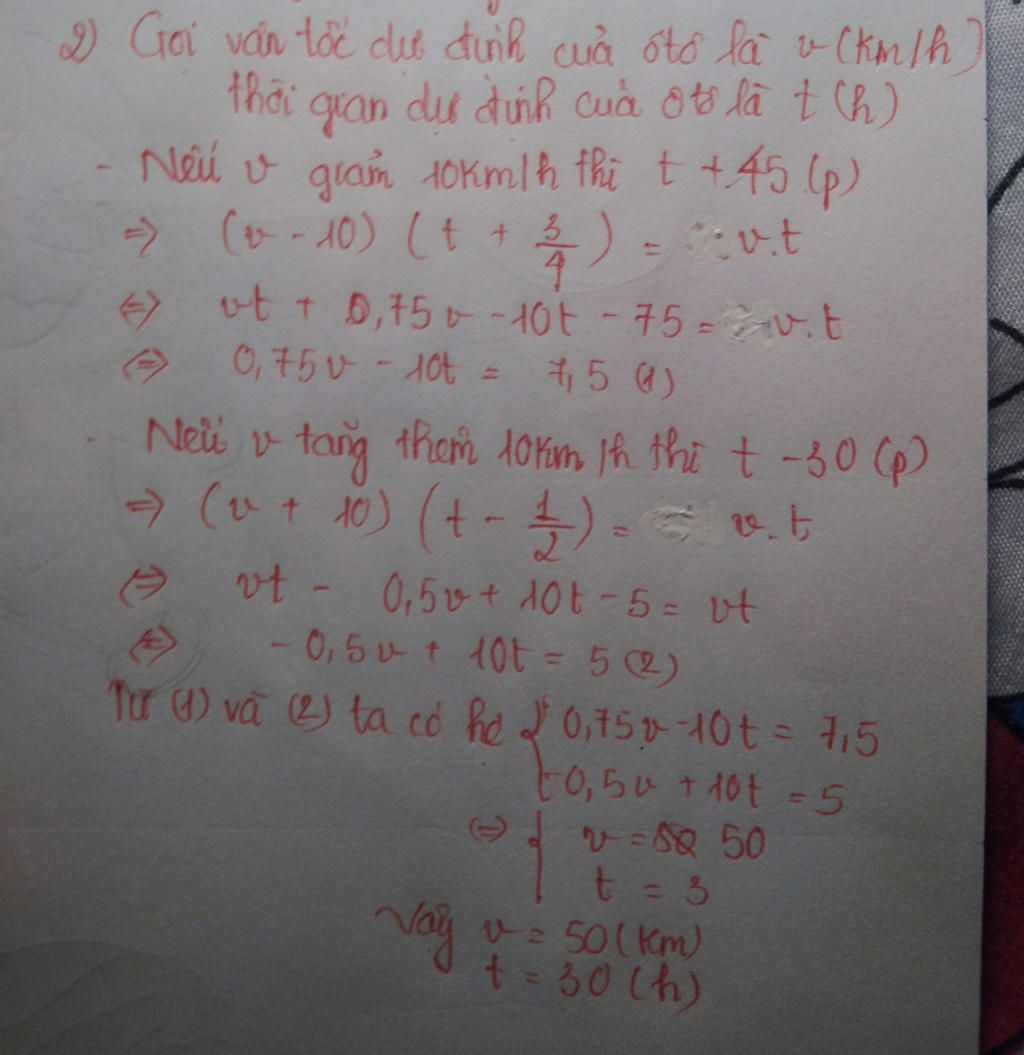 2) Gọi vận tốc dự định của ôtô là v (km/h)
thời gian dự định của ôtô là t (h)
- Nếu v giảm 10km/h thì t + 45 (p)
=> (v - 10) (t + 3/4) = v.t
<=> vt + 0,75v - 10t - 75 = v.t
<=> 0,75v - 10t = 7,5 (1)
- Nếu v tăng thêm 10km/h thì t - 30 (p)
=> (v + 10) (t - 1/2) = v.t
<=> vt - 0,5v + 10t - 5 = vt
<=> - 0,5v + 10t = 5 (2)
Từ (1) và (2) ta có hệ { 0,75v - 10t = 7,5
{ -0,5v + 10t = 5
<=> { v = 50
t = 3
Vậy v = 50 (km)
t = 30 (h)